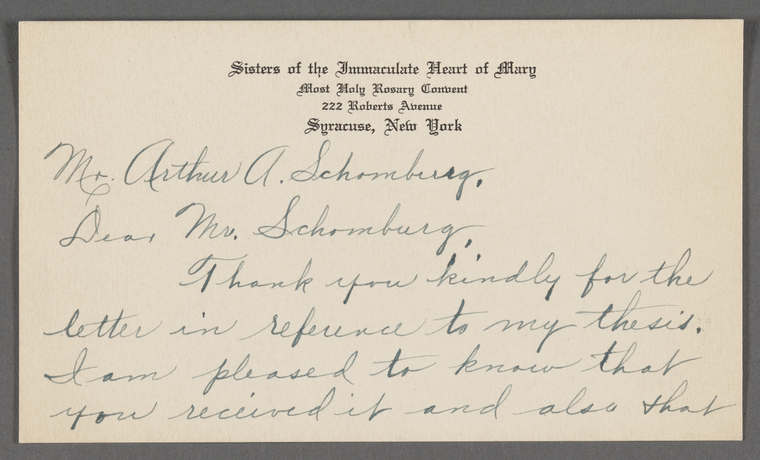 Sisters of the Immaculate Heart of Mary
Most Holy Rosary Convent
222 Roberts Avenue
Syracuse, New York
Mr. Arthur A. Schomburg,
Dear Mr. Schomburg,
Thank you kindly for the
letter in reference to my thesis.
I am pleased to know that
you received it and also that